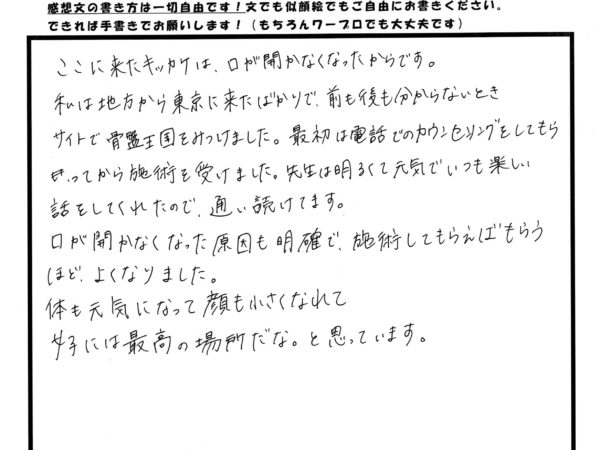 感想文の書き方は一切自由です！文でも似顔絵でもご自由にお書きください。
できれば手書きでお願いします！（もちろんワープロでも大丈夫です）
ここに来たキッカケは、口が開かなくなったからです。
私は地方から東京に来たばかりで、前も後も分からないとき
サイトで骨盤王国をみつけました。最初は電話でのカウンセリングをしてもら
ってから施術を受けました。先生は明るくて元気でいつも楽しい
話をしてくれたので、通い続けてます。
口が開かなくなった原因も明確で、施術してもらえばもらう
ほど、よくなりました。
体も元気になって顔も小さくなれて
女子には最高の場所だな。と思っています。